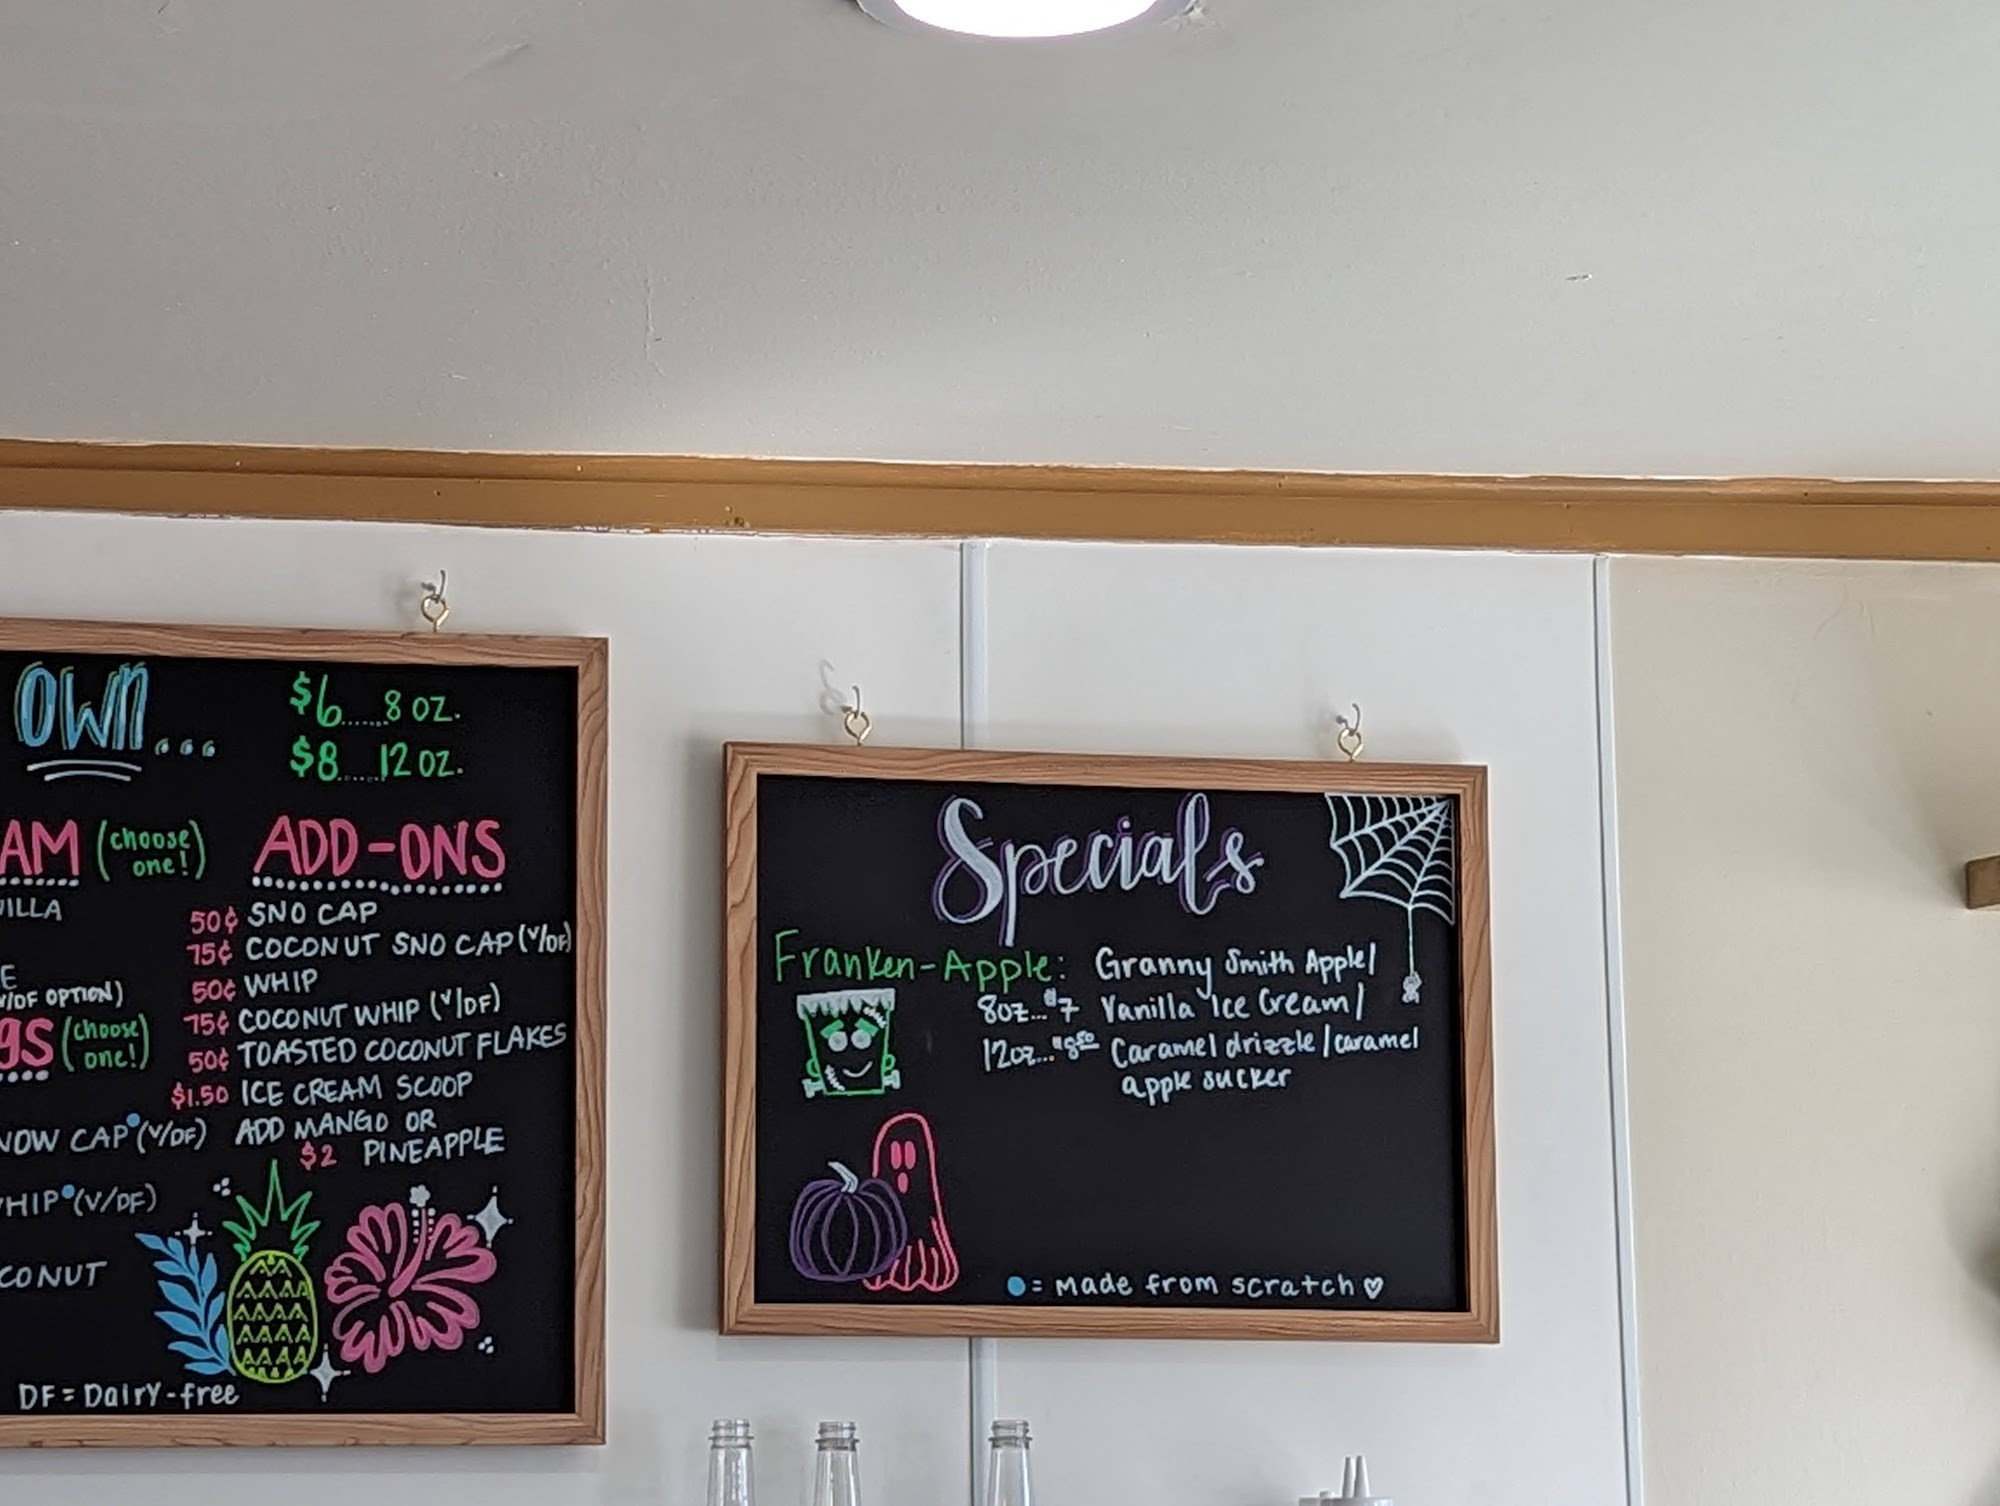 own...
$6......8 oz.
$8.....12 oz.
(choose
one!)
ADD-ONS
50¢ SNO CAP
75¢ COCONUT SNO CAP (V/DF)
50¢ WHIP
75¢ COCONUT WHIP (V/DF)
50¢ TOASTED COCONUT FLAKES
$1.50 ICE CREAM SCOOP
ADD MANGO OR
$2 PINEAPPLE
/DF OPTION)
(choose
one!)
NOW CAP (V/DF)
WHIP (V/DF)
CONUT
DF = Dairy-free
Specials
Franken-Apple: Granny Smith Apple/
8oz...$7 Vanilla Ice Cream/
12oz...$8.50 Caramel drizzle/caramel
apple sucker
= made from scratch